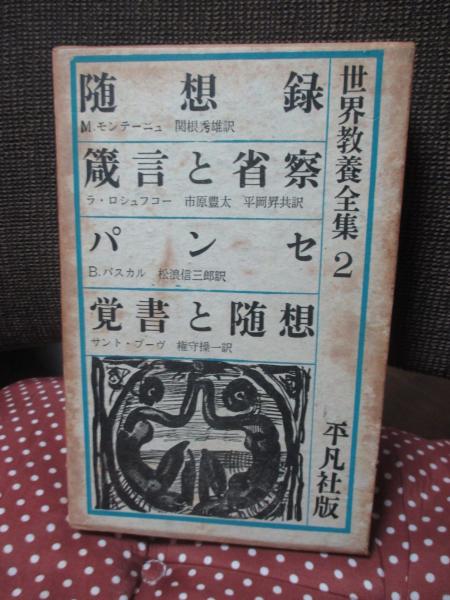 世界教養全集 2
随想録
M.モンテーニュ 関根秀雄訳
箴言と省察
ラ・ロシュフコー 市原豊太 平岡昇共訳
パンセ
B.パスカル 松浪信三郎訳
覚書と随想
サント・ブーヴ 権守操一訳
平凡社版